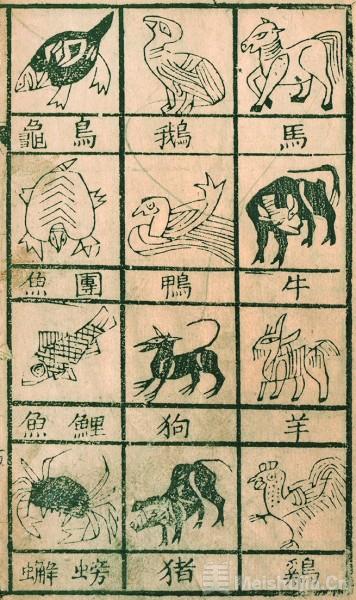 馬
鵝
烏龜
牛
鴨
團魚
羊
狗
鯉魚
鷄
猪
螃蠏
美 Meishujia.Cn